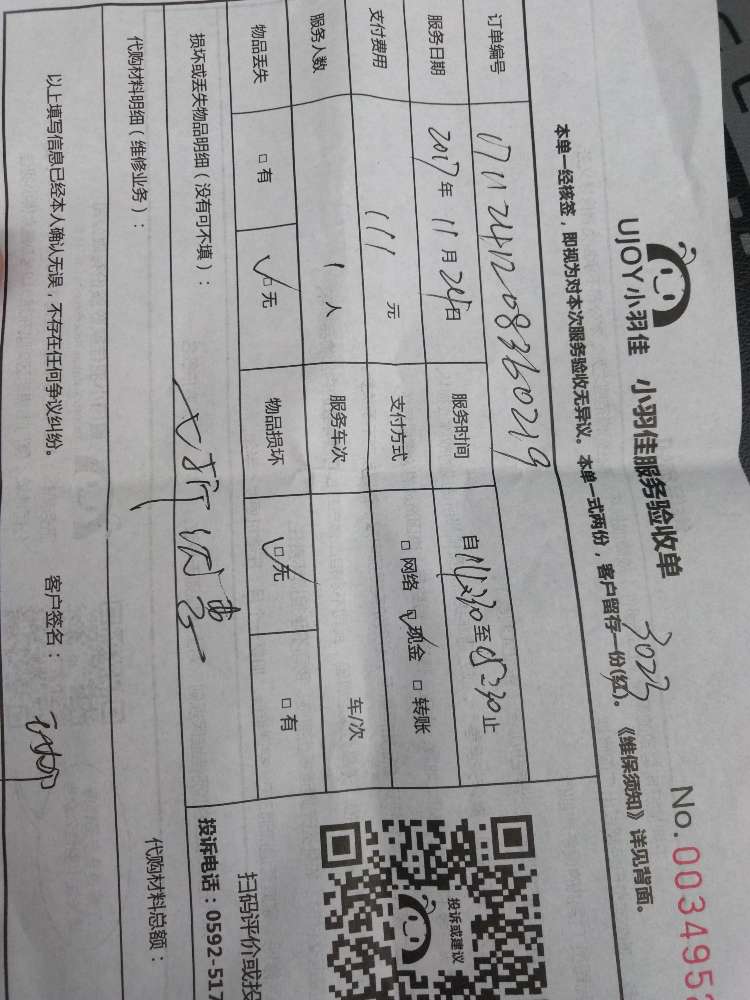 UJOY小羽佳 小羽佳服务验收单
3023
No.0034952
本单一经核签，即视为对本次服务验收无异议。本单一式两份，客户留存一份(红)。《维保须知》详见背面。
订单编号 1711241208360219
服务日期 2017年11月24日 服务时间 自14:30至15:30止
支付费用 111元 支付方式 □网络 ☑现金 □转账
服务人数 1人 服务车次 车/次
物品丢失 □有 ☑无 物品损坏 ☑无 □有
损坏或丢失物品明细（没有可不填）：
代购材料明细（维修业务）： 代购材料总额：
以上填写信息已经本人确认无误，不存在任何争议纠纷。 客户签名：
投诉或建议
扫码评价或投
投诉电话：0592-517